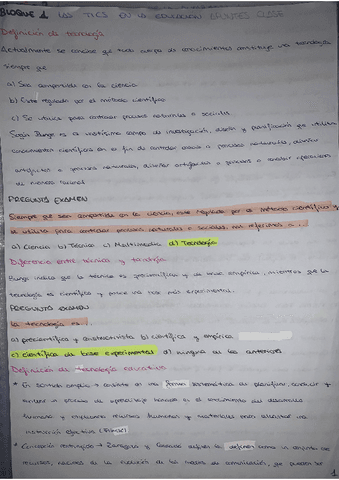 BLOQUE 1 LAS TICS EN LA EDUCACIÓN APUNTES CLASE
Definición de tecnología
Actualmente se concibe que todo cuerpo de conocimientos constituye una tecnología
siempre que
a) Sea compartido con la ciencia
b) Esté regulado por el método científico
c) Se utilice para controlar procesos naturales o sociales
Según Bunge es el vastísimo campo de investigación, diseño y planificación que utiliza
conocimientos científicos con el fin de controlar cosas o procesos naturales, diseñar
artefactos o procesos naturales, diseñar artefactos o procesos o concebir operaciones
de manera racional
PREGUNTA EXAMEN
Siempre que sea compartido con la ciencia, esté regulado por el método científico y
se utilice para controlar procesos naturales o sociales nos referimos a...
a) Ciencia b) Técnica c) Multimedia d) Tecnología
Diferencia entre técnica y tecnología
Bunge indica que la técnica es precientífica y de base empírica, mientras que la
tecnología es científica y posee una base más experimental.
PREGUNTA EXAMEN
La tecnología es...
a) precientífica y abstractivista b) científica y empírica
c) científica de base experimental d) ninguna de las anteriores
Definición de tecnología educativa
* En sentido amplio: consiste en una forma sistemática de planificar, conducir y
evaluar el proceso de aprendizaje basado en el conocimiento del desarrollo
humano y empleando recursos humanos y materiales para alcanzar una
instrucción efectiva
* Concepción restringida → Zaragoza y Casado la definen como un conjunto de
recursos, nacidos de la revolución de los medios de comunicación, que pueden ser
1